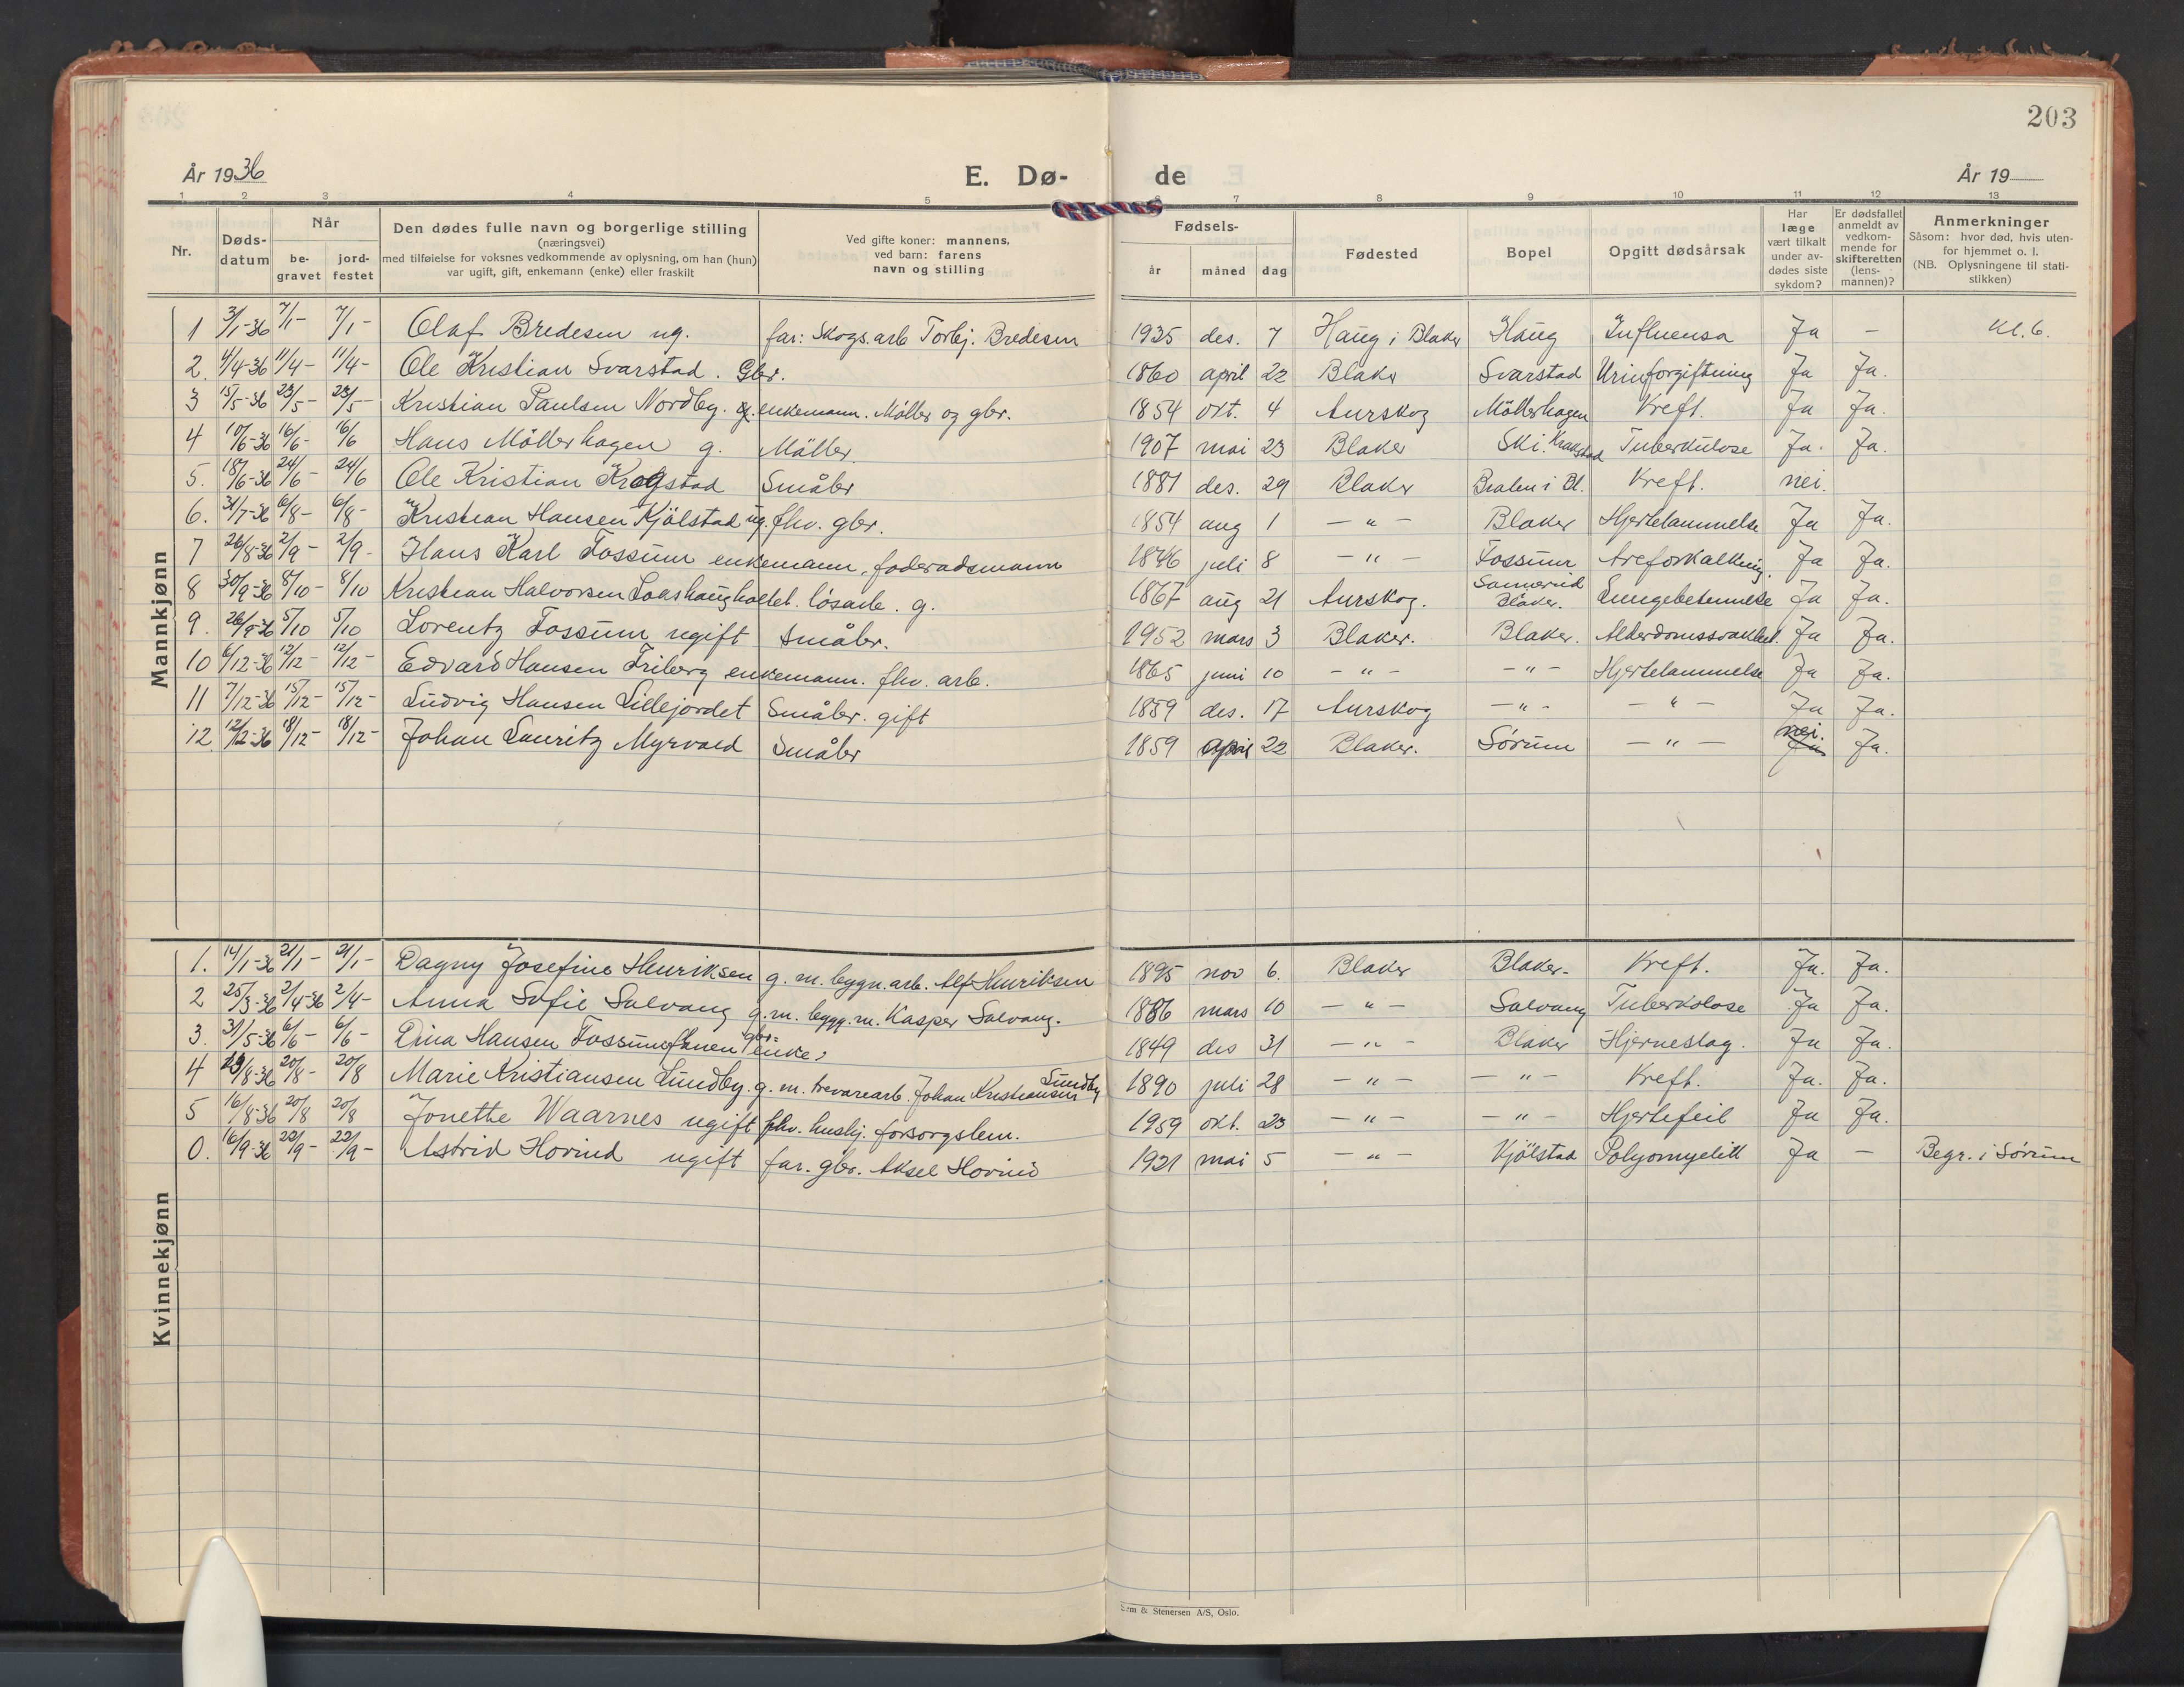 203
År 1936 E. Dø- de År 19
1 2 3 4 5 6 7 8 9 10 11 12 13
Nr.
Døds-
datum
Når
be-
gravet
jord-
festet
Den dødes fulle navn og borgerlige stilling
(næringsvei)
med tilføielse for voksnes vedkommende av oplysning, om han (hun)
var ugift, gift, enkemann (enke) eller fraskilt
Ved gifte koner: mannens,
ved barn: farens
navn og stilling
Fødsels-
år måned dag
Fødested
Bopel
Opgitt dødsårsak
Har
læge
vært tilkalt
under av-
dødes siste
sykdom?
Er dødsfallet
anmeldt av
vedkom-
mende for
skifteretten
(lens-
mannen)?
Anmerkninger
Såsom: hvor død, hvis uten-
for hjemmet o. l.
(NB. Oplysningene til stati-
stikken)
Mannkjønn
1 3/1-36 7/1- 7/1- Olaf Bredesen ug. far: Skogs.arb Torbj. Bredesen 1935 des. 7 Haug i Blaker Haug Influensa Ja – Kl. 6.
2. 4/4-36 11/4- 11/4- Ole Kristian Svarstad. Gbr. 1860 april 22 Blaker Svarstad Urinforgiftning Ja Ja.
3 15/5-36 23/5- 23/5- Kristian Paulsen Nordby. enkemann. Möller og gbr. 1854 okt. 4 Aurskog Möllerhagen Kreft. Ja Ja.
4 10/6-36 16/6- 16/6 Hans Möllerhagen g. Möller. 1907 mai 23 Blaker Ski. Krakstad Tuberkulose Ja. Ja.
5. 18/6-36 24/6- 24/6 Ole Kristian Krogstad Småbr 1881 des. 29 Blaker Bralen i Bl. Kreft. nei.
6. 31/7-36 6/8- 6/8- Kristian Hansen Kjölstad ug. fhv. gbr. 1854 aug 1 – " – Blaker Hjertelammelse Ja Ja.
7 26/8-36 2/9- 2/9- Hans Karl Fossum enkemann, föderådsmann 1846 juli 8 – " – Fossum Åreforkalkning. Ja Ja.
8 30/9-36 8/10- 8/10 Kristian Halvorsen Loashaugholtet. lösarb. g. 1867 aug 21 Aurskog. Sannerud Blaker. Lungebetennelse Ja Ja.
9. 26/9-36 5/10 5/10 Lorentz Fossum ugift Småbr. 1952 mars 3 Blaker. Blaker. Alderdomssvakhet. Ja Ja.
10 6/12-36 12/12- 12/12- Edvard Hansen Friberg enkemann. fhv. arb. 1865 juni 10 – " – – " – Hjertelammelse Ja Ja.
11 7/12-36 15/12- 15/12- Ludvig Hansen Lillejordet Småbr. gift 1859 des. 17 Aurskog – " – – " – Ja Ja.
12. 12/12-36 18/12- 18/12- Johan Lauritz Myrvold Småbr 1859 april 22 Blaker. Sörum – " – nei. Ja Ja.
Kvinnekjønn
1. 14/1-36 21/1- 21/1- Dagny Josefine Henriksen g. m. bygn. arb. Alf Henriksen 1895 nov 6. Blaker Blaker. Kreft. Ja. Ja.
2 25/3-36 2/4-36 2/4- Anna Sofie Solvang g. m. bygg. m. Kasper Solvang. 1886 mars 10 – " – Solvang Tuberkolose Ja Ja.
3. 31/5-36 6/6- 6/6- Dina Hansen Fossum gbr. enke. 1849 des 31 – " – Blaker Hjerneslag. Ja Ja.
4 13/8-36 20/8- 20/8 Marie Kristiansen Lundby. g. m. trevarearb. Johan Kristiansen Lundby 1890 juli 28 – " – – " – Kreft. Ja. Ja.
5 16/8-36 20/8 20/8 Jonette Waarnes ugift fhv. hushj. forsorgslem. 1959 okt. 23 – " – – " – Hjertefeil Ja Ja.
0. 16/9-36 22/9- 22/9- Astrid Hovind ugift far. gbr. Aksel Hovind 1921 mai 5 – " – Kjölstad Polyomyelitt Ja – Begr. i Sörum
& Stenersen A/S, Oslo.